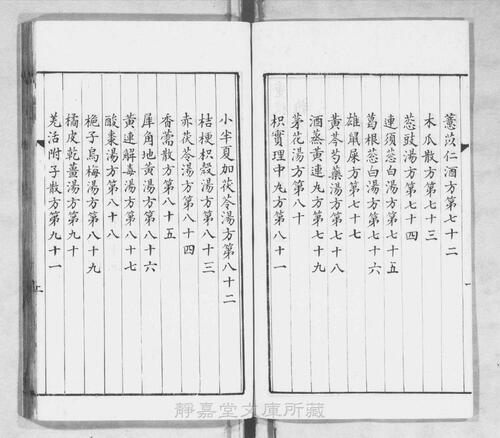 薏苡仁酒方第七十二
木瓜散方第七十三
葱豉湯方第七十四
連須葱白湯方第七十五
葛根葱白湯方第七十六
雄鼠屎方第七十七
黄芩芍藥湯方第七十八
酒蒸黄連丸方第七十九
茅花湯方第八十
枳實理中丸方第八十一
小半夏加茯苓湯方第八十二
桔梗枳殻湯方第八十三
赤茯苓湯方第八十四
香薷散方第八十五
犀角地黄湯方第八十六
黄連解毒湯方第八十七
酸棗湯方第八十八
梔子烏梅湯方第八十九
橘皮乾薑湯方第九十
羌活附子散方第九十一
靜嘉堂文庫所藏